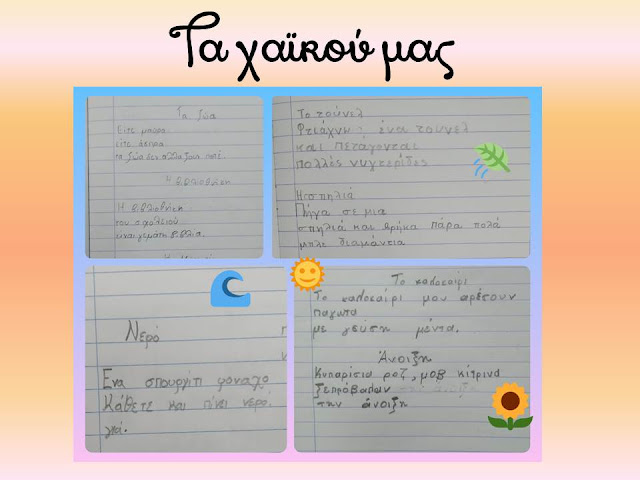 Τα χαϊκού μας
Τα ζώα
είτε μαύρα
είτε άσπρα
τα ζώα δεν αλλάζουν ποτέ.
Η βιβλιοθήκη
Η βιβλιοθήκη
του σχολείου
είναι γεμάτη βιβλία.
Το τούνελ
Φτιάχνω ένα τούνελ
και πετάγονται
πολλές νυχτερίδες
Η σπηλιά
Πήγα σε μια
σπηλιά και βρήκα πάρα πολά
μπλε διαμάντια
Νερό
Ένα σπουργίτι
Κάθετε και πίνει νερό.
Το καλοκαίρι
Το καλοκαίρι μου αρέσουν
παγωτα
με γεύση μέντα.
Άνοιξη
Κυπαρίσια ροζ, μοβ κίτρινα
ξεπρόβαλαν
την άνοιξη